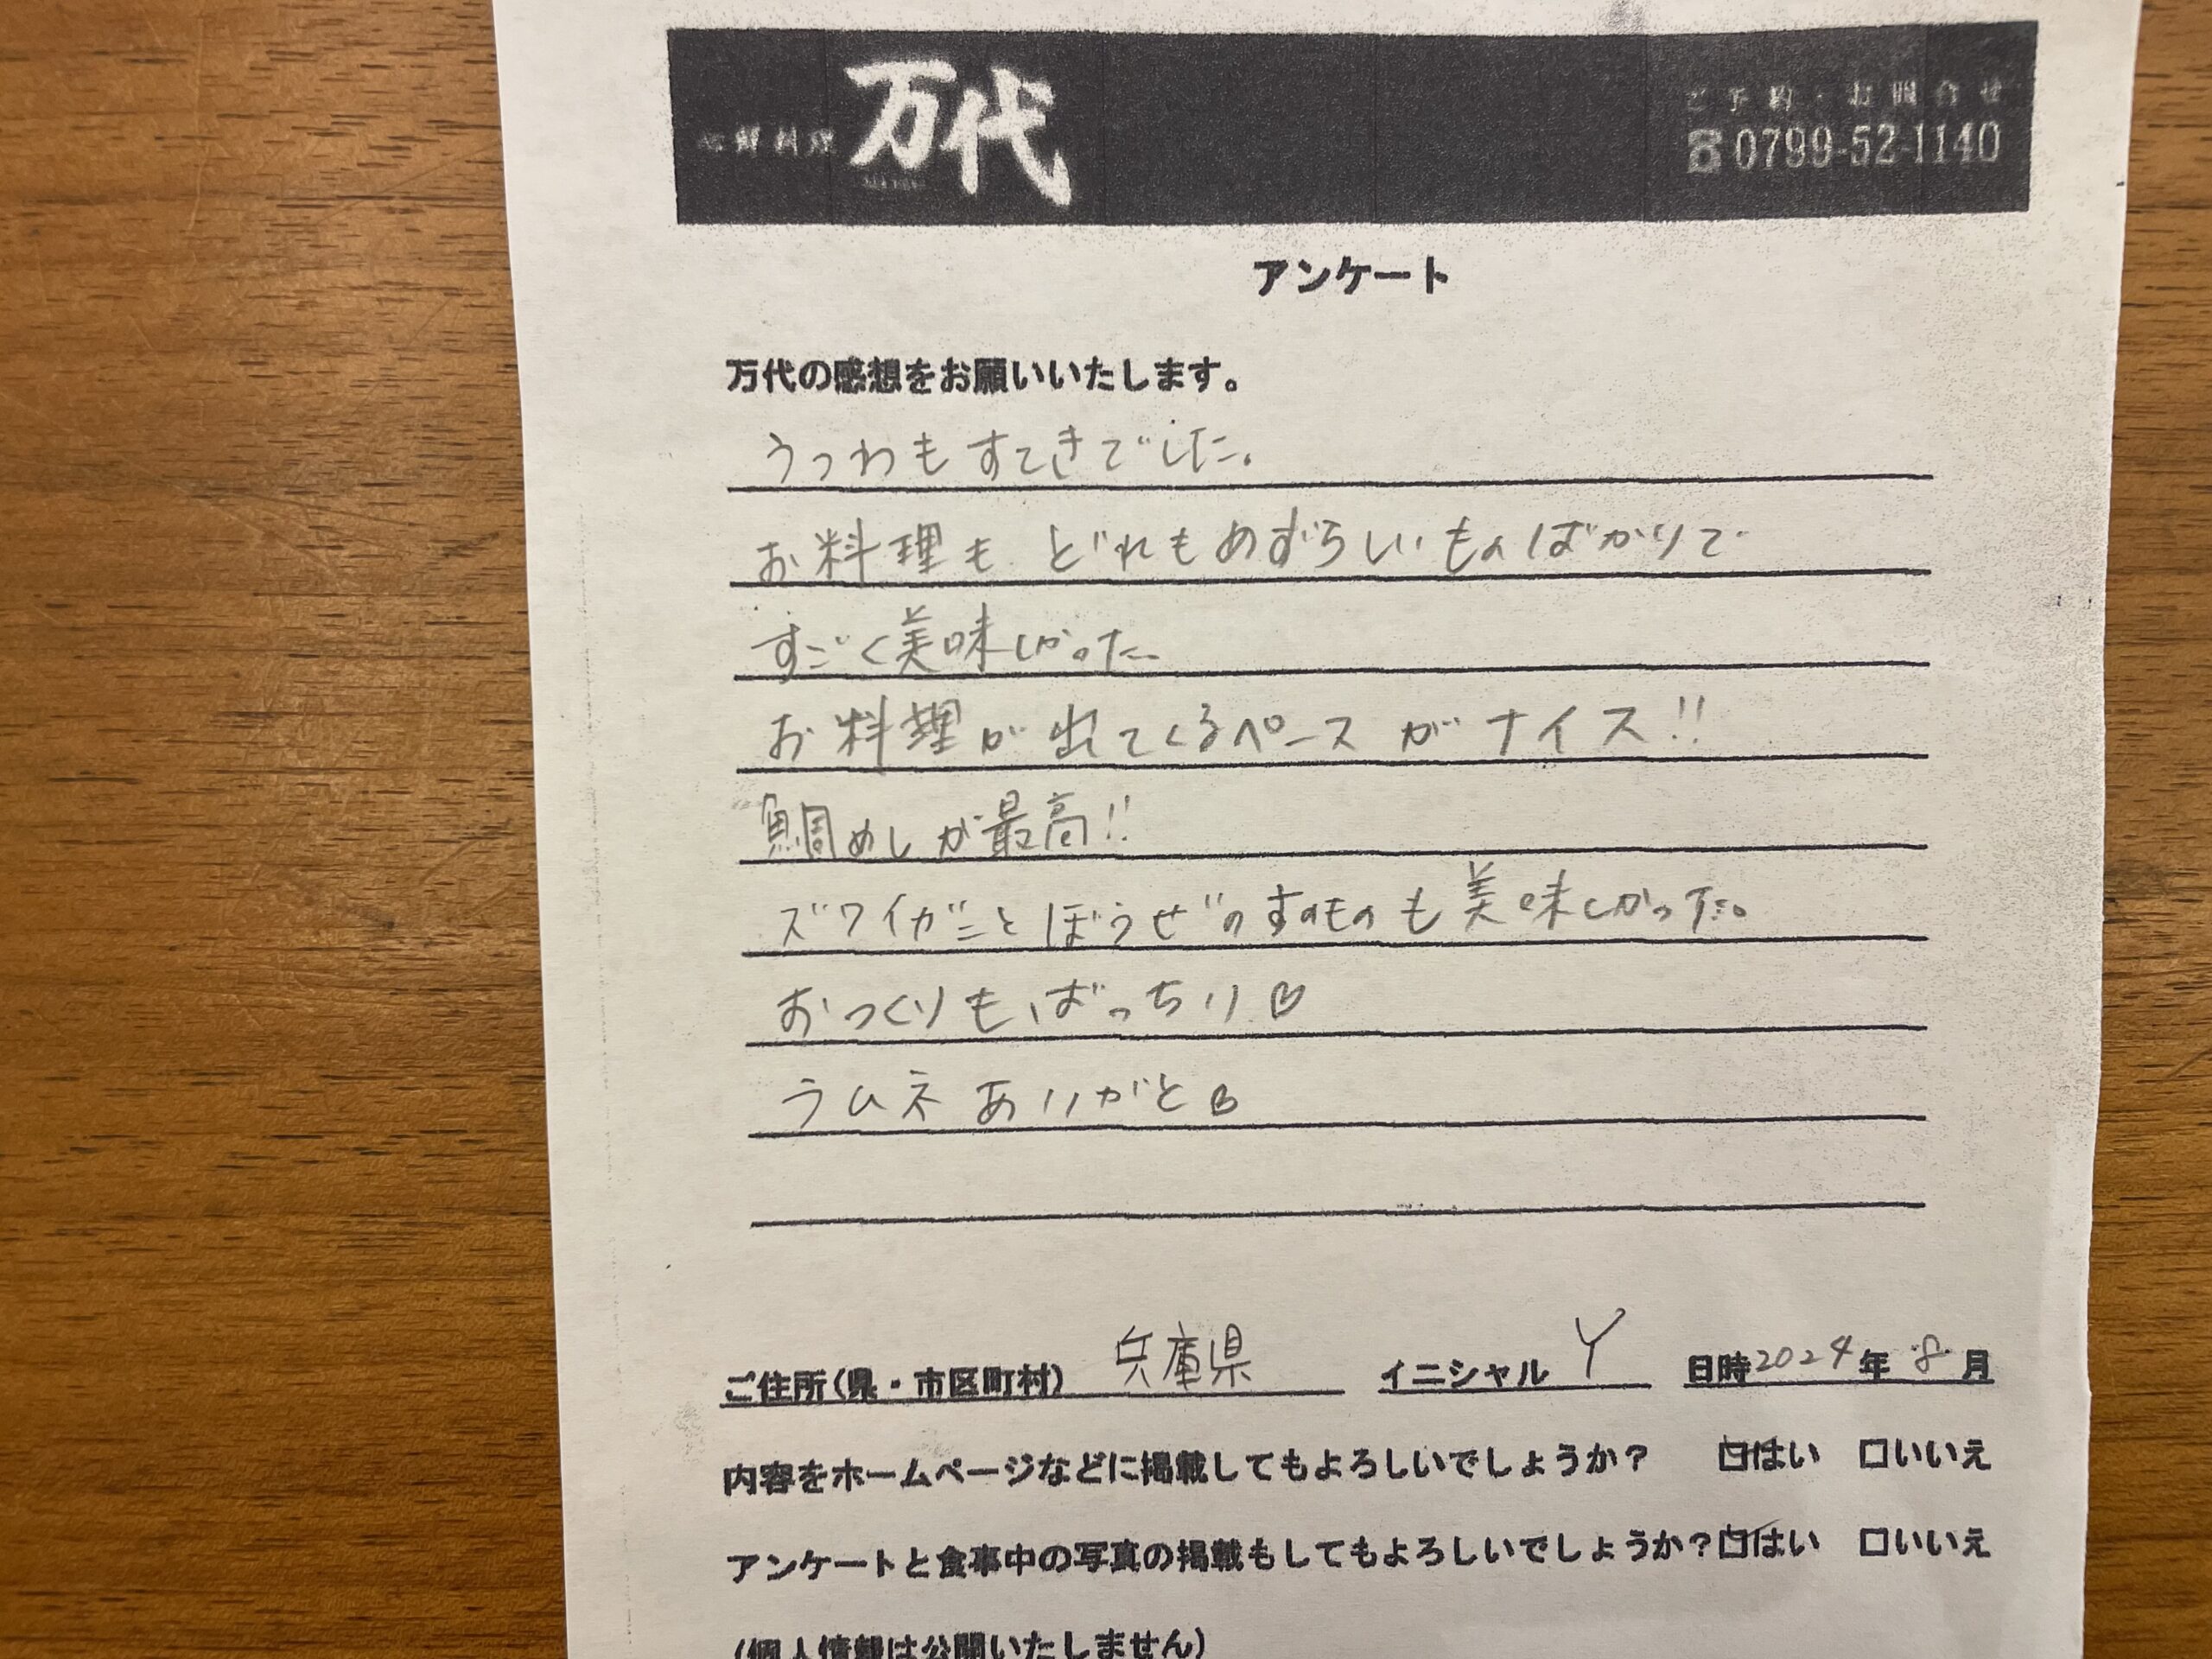 心鮮料理 万代
ご予約・お問合せ
☎0799-52-1140
アンケート
万代の感想をお願いいたします。
うつわもすてきでした。
お料理も どれもめずらしいものばかりで
すごく美味しかった
お料理が出てくるペースがナイス!!
鯛めしが最高!!
ズワイガニとぼうぜのすのものも美味しかった。
おつくりもばっちり♡
ラムネありがと♡
ご住所(県・市区町村) 兵庫県 イニシャル Y 日時2024年 8月
内容をホームページなどに掲載してもよろしいでしょうか? ☑はい □いいえ
アンケートと食事中の写真の掲載もしてもよろしいでしょうか?☑はい □いいえ
(個人情報は公開いたしません)